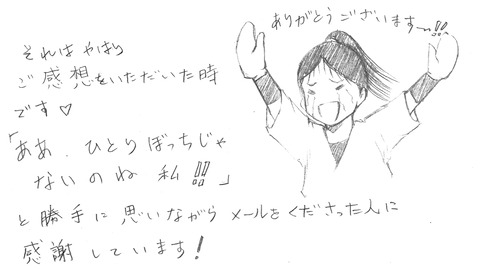 ありがとうございます〜!!
それはやはり
ご感想をいただいた時
です♡
「ああ、ひとりぼっちじゃ
ないのね 私!!」
と勝手に思いながらメールをくださった人に
感謝しています!